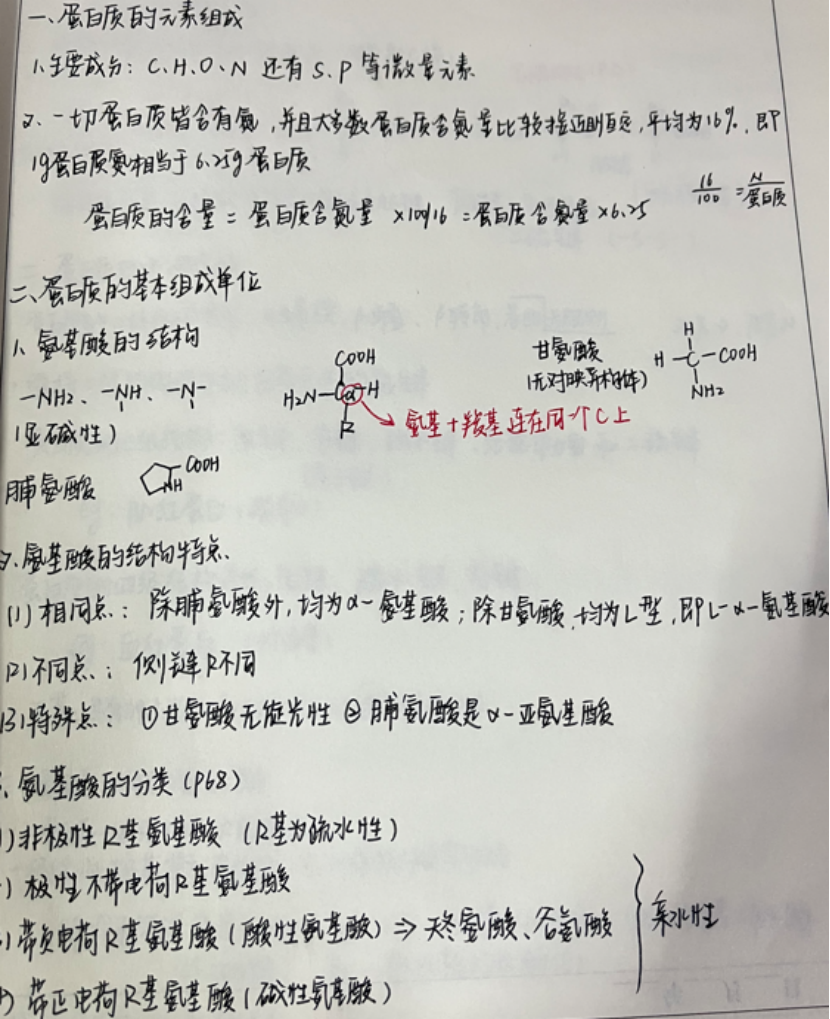 一、蛋白质的元素组成
1、主要成分：C、H、O、N 还有 S、P 等微量元素
2、一切蛋白质皆含有氮，并且大多数蛋白质含氮量比较接近且恒定，平均为16%，即
1g蛋白质氮相当于6.25g蛋白质
蛋白质的含量 = 蛋白质含氮量 ×100/16 = 蛋白质含氮量×6.25
16/100 = N/蛋白质
二、蛋白质的基本组成单位
1、氨基酸的结构
—NH2、—NH、—N—
(显碱性)
COOH
H2N—Cα—H
R
氨基+羧基连在同一个C上
甘氨酸
(无对映异构体)
H
H—C—COOH
NH2
脯氨酸
COOH
NH
2、氨基酸的结构特点
(1) 相同点：除脯氨酸外，均为α-氨基酸；除甘氨酸，均为L型，即L-α-氨基酸
(2) 不同点：侧链R不同
(3) 特殊点：①甘氨酸无旋光性 ②脯氨酸是α-亚氨基酸
、氨基酸的分类 (P68)
) 非极性R基氨基酸 (R基为疏水性)
) 极性不带电荷R基氨基酸
) 带负电荷R基氨基酸 (酸性氨基酸) ⇒ 天冬氨酸、谷氨酸
) 带正电荷R基氨基酸 (碱性氨基酸)
亲水性